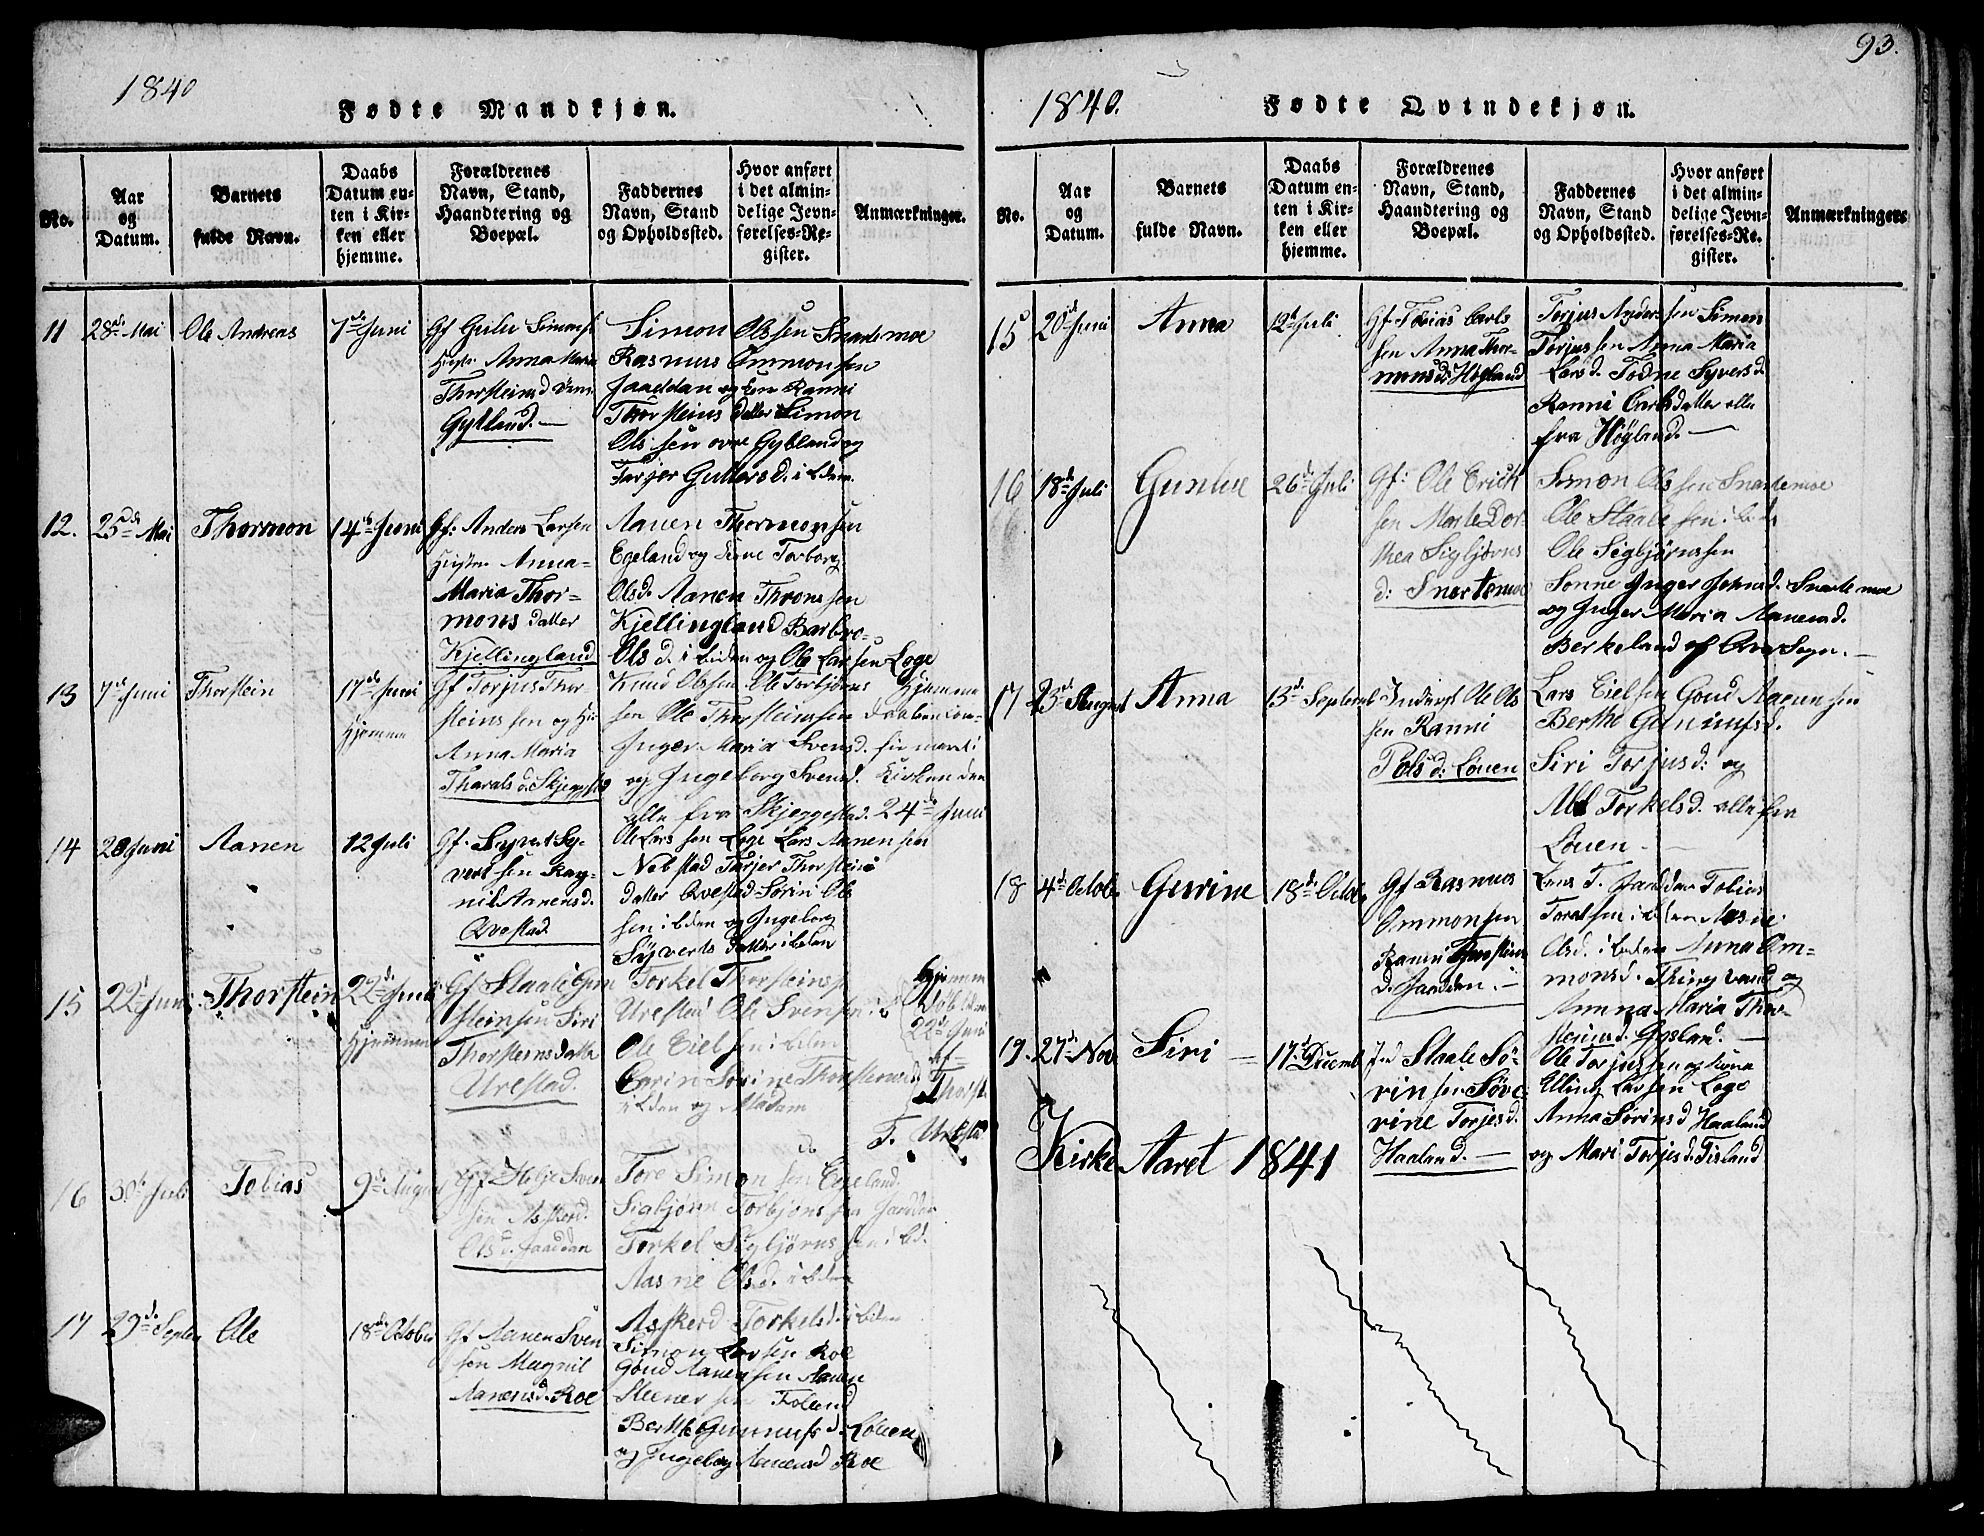 1840
Fødte Mandkjøn.
No.
Aar
og
Datum.
Barnets
fulde Navn.
Daabs
Datum en-
ten i Kir-
ken eller
hjemme.
Forældrenes
Navn, Stand,
Haandtering og
Boepæl.
Faddernes
Navn, Stand
og Opholdssted.
Hvor anført
i det almin-
delige Jevn-
førelses-Re-
gister.
Anmærkninger.
11
28de Mai
Ole Andreas
7de Juni
Gf Simons
Anna Maria
Thorsteinsd
Gyland.
Simon Olssen Snartemoe
Rasmus Ommonsen
Jaaddan og Kone Ranni
Thorsteins datter Simon
Olssen øvre Gyland og
Tarjer Guttorsd. i bdem.
12.
25de Mai
Thormon
14de Juni
Gf: Anders Larsen
Hustru Anna
Maria Thor-
mons datter
Kjellingland
Aanen Thormonsen
Egeland og Kone Torborg
Olsd. Aanen Thronsen
Kjellingland Barbro
Ols d. i biden og Ole Larsen Loge
13
7de Juni
Thorstein
17de Juni
Hjemme
Gf Torjus Thor-
steinssen og Hu
Anna Maria
Tharals d. Skjeggestad
Knud Olssen Ole Torbjørns
sen Ole Thorsteinssen
Inger Maria Svensd.
og Ingeborg Svensd.
alle fra Skjeggestad.
Hjemme
Daaben Con-
firmert i
Kirken den
24de Juni
14
20 Juni
Aanen
12 Juli
Gf. Syvert Sy-
vertsen Rag-
nil Aanensd.
Qvestad
Ole Larssen Loge Lars Aanensen
Nebstad Tarjer Thorsteins
datter Qvestad Sørin Ols
sen i biden og Ingeborg
Syverts datter i biden
15
22de Juni
Thorstein
22de Juni
Hjemme
Gf Staale Gun
steinsen Siri
Thorsteinsdatter
Urestad.
Torkel Thorsteins
Urestad Ole Svensen i b
Ole Eielsen i biden
Carin Sørine Thorsteinsd
i biden og Madam
Hjemme
Døbt den
22de Juni
af
Thorst.
T. Urestad
16
30te Juli
Tobias
9de August
Gf Helje Sven
sen Asskerd
Olsd. Jaaddan
Tore Simonsen Egeland.
Sigbjørn Torbjønssen Jaddan
Torkel Sigbjørnssen i bd.
Aasne Olsd. i biden
Asskerd Torkelsd. i biden
17
29de Septem
Ole
18de October
Gf Aanen Sven
sen Magnil
Aanensd. Roe
Simon Larsen Roe
Gond Aanensen Aanen
Steenersen Foland
Berthe Gunnufsd. Løuen
og Ingeborg Aanensd Roe
93.
1840.
Fødte Qvindekjøn.
No.
Aar
og
Datum.
Barnets
fulde Navn.
Daabs
Datum en-
ten i Kir-
ken eller
hjemme.
Forældrenes
Navn, Stand,
Haandtering og
Boepæl.
Faddernes
Navn, Stand
og Opholdssted.
Hvor anført
i det almin-
delige Jevn-
førelses-Re-
gister.
Anmærkninger
15
20de Juni
Anna
12de Juli
Gf Tobias Carls
sen Anna Thor-
monsd: Høgland
Torjus Anderssen Simon
Torjussen Anna Maria
Larsd. Todne Syversd.
Ranni Carlsdatter alle
fra Høyland.
16
18de Juli
Gunhe
26de Juli
Gf: Ole Erick
sen Marte Dor-
thea Sigbjørns
d: Snartemoe
Simon Olssen Snartemoe
Ole Staalesen i bide
Ole Sigbjørnssen
Sonne Inger Johnsd. Snartemoe
og Inger Maria Aanensd.
Berkeland af Qvas Sogn.
17
23de August
Anna
13de Septemb
Inderst Ole Ols
sen Ranni
Pols d: Løuen
Lars Eielsen Goud Aanensen
Berthe Gunnufsd.
Siri Torjusd: og
Abel Torkelsd. alle fra
Løuen
18
4de Octob.
Gurine
18de Octob.
Gf Rasmus
Ommonsen
Ranni Thorsteins
d. Jaaddan
Lars T. Jaaddan Tobias
Toralsen i biden Aasne
Olsd. i biden Anna Om-
monsd. Thingvand og
Amna Maria Thor-
steinsd. Gysland.
19.
27de Nov
Siri
17de Decemb
Ind Staale Sø-
rinsen Søve-
rine Torjesd.
Haaland.
Ole Torjussen og Kona
Elling Larsen Loge
Anna Sørinsd Haaland
og Mari Torjesd. Fisland
Kirke Aaret 1841